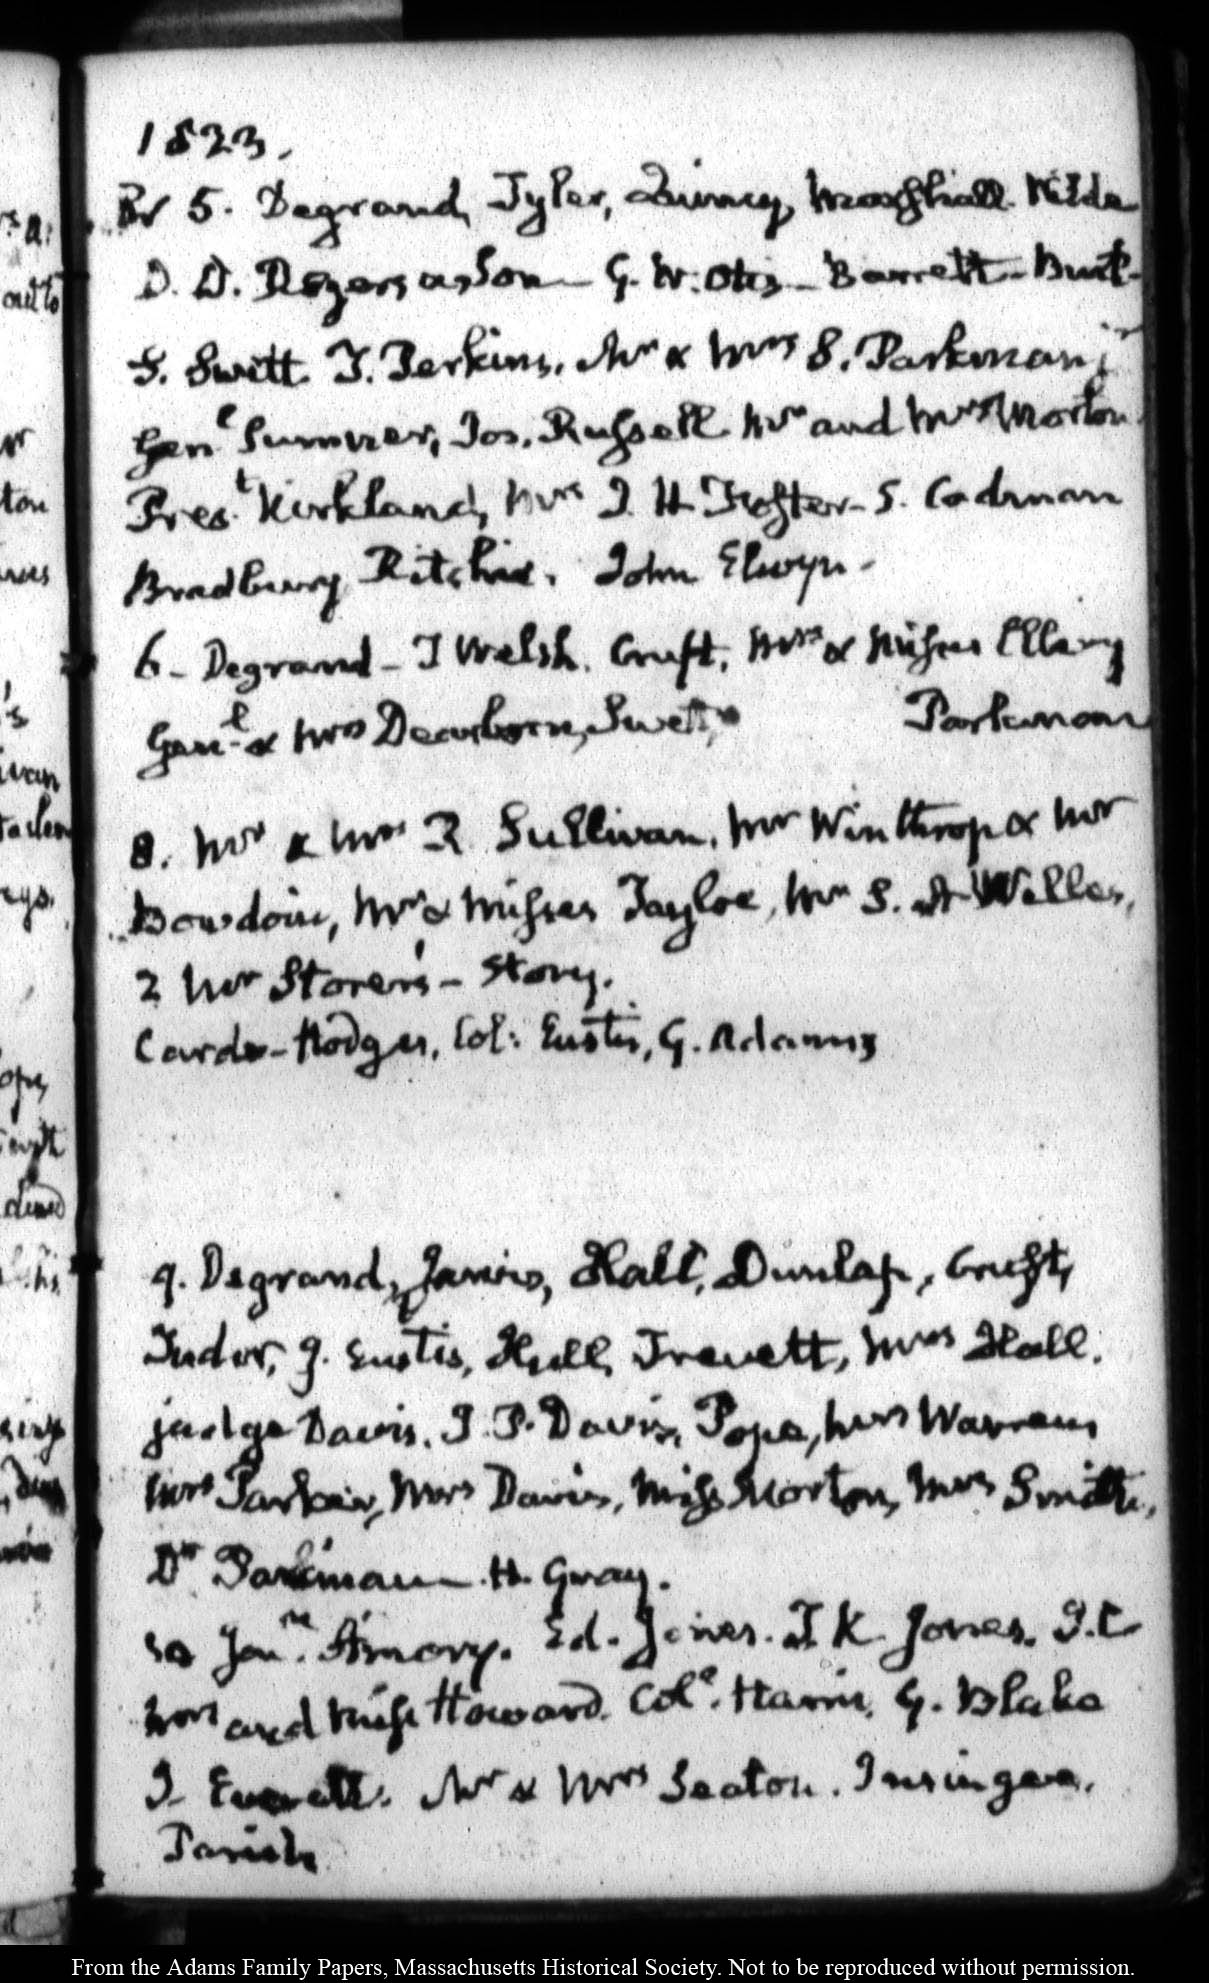 1823.
Br 5. Degrand, Tyler, Quincy, Marshall. Wilde
D. D. Rogers & Son — G. W. Otis — Barrett — Burt —
S. Swett. T. Perkins. Mr & Mrs S. Parkman jr
Genl Sumner, Jos. Russell Mr and Mrs Morton.
Prest Kirkland, Mrs I. H. Foster — S. Codman
Bradbury Ritchie. John Elwyn.
6 — Degrand — T Welsh. Cruft, Mrs & Misses Ellery
Genl & Mrs Dearborn, Swett, Parkman
8. Mr & Mrs R Sullivan. Mr Winthrop & Mr
Bowdoin, Mr & Misses Tayloe, Mr S. A Welles,
2 Mr Storer's — Story.
Cards — Hodges, Col: Eustis, G. Adams
9. Degrand, Hall, Dunlap, Cruft,
Tudor, J. Eustis, Hull, Trevett, Mrs Hall.
judge Davis. I. P. Davis, Pope, Mrs Warren,
Mrs Parker, Mrs Davis, Miss Morton, Mrs Smith,
Dr Parkman — H. Gray.
10 Jonn Amory. Ed. Jones. T K. Jones. I. C
Mrs and Miss Howard. Colo. Harris, G. Blake
Everett. Mr & Mrs Seaton. Insinger.
Parish
From the Adams Family Papers, Massachusetts Historical Society. Not to be reproduced without permission.